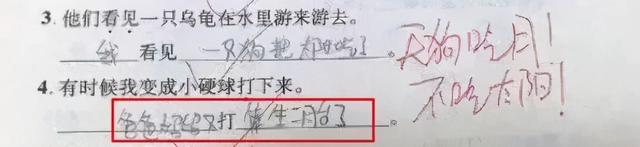 3. 他们看见一只乌龟在水里游来游去。
我 看见 一只狗把太阳吃了。
天狗吃月！
不吃太阳！
4. 有时候我变成小硬球打下来。
爸爸妈妈又打算生二胎了。